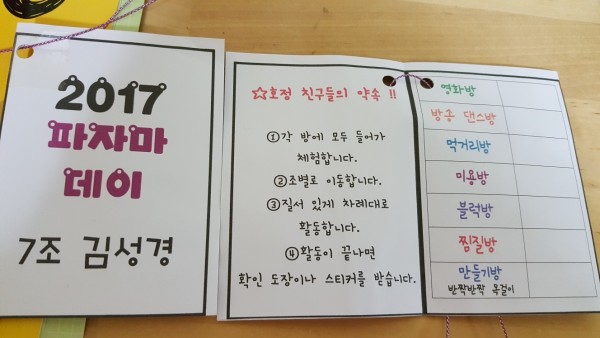 2017
파자마
데이
7조 김성경
☆호정 친구들의 약속 !!
①각 방에 모두 들어가
체험합니다.
②조별로 이동합니다.
③질서 있게 차례대로
활동합니다.
④활동이 끝나면
확인 도장이나 스티커를 받습니다.
영화방
방송 댄스방
먹거리방
미용방
블럭방
찜질방
만들기방
반짝반짝 목걸이